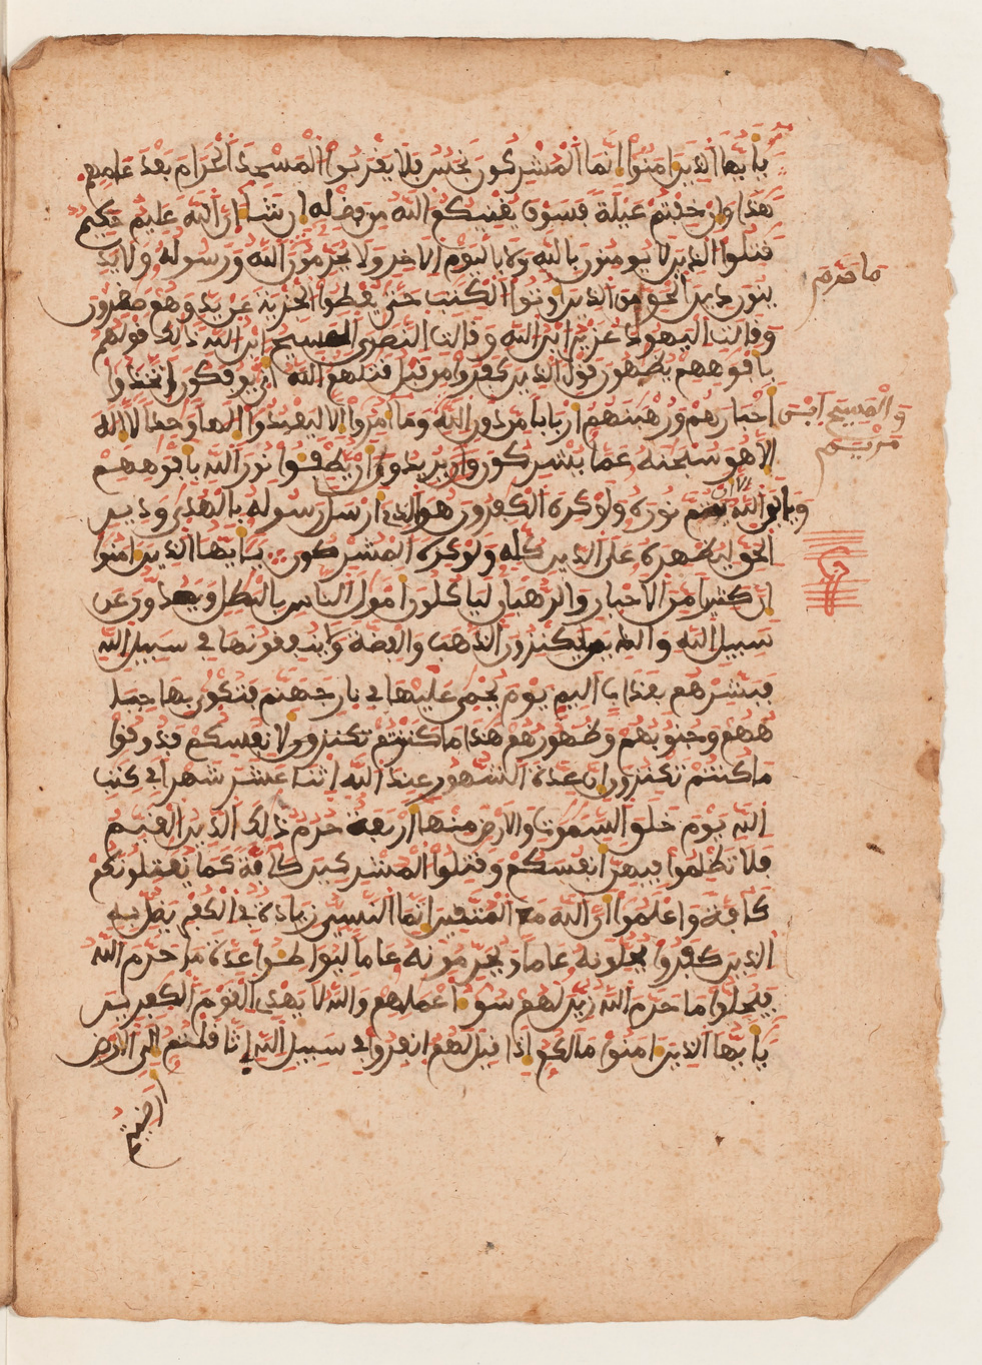 يا يها الذين امنوا انما المشركون نجس فلا يقربوا المسجد الحرام بعد عامهم
هذا وان خفتم عيلة فسوف يغنيكم الله من فضله ان شاء ان الله عليم حكيم
قتلوا الذين لا يومنون بالله ولا باليوم الاخر ولا يحرمون الله ورسوله ولا يد
ما حرم
ينون دين الحق من الذين اوتوا الكتب حتى يعطوا الجزية عن يد وهم صغرون
وقالت اليهود عزير ابن الله وقالت النصرى المسيح ابن الله ذلك قولهم
بافوههم يضهون قول الذين كفروا من قبل قتلهم الله انى يوفكون اتخذوا
احبارهم ورهبنهم اربابا من دون الله وما امروا الا ليعبدوا الها وحدا لا اله
والمسيح ابن
مريم
الا هو سبحنه عما يشركون يريدون ان يطفوا نور الله بافوههم
ويابى الله الا ان يتم نوره ولو كره الكفرون هو الذي ارسل رسوله بالهدى ودين
الحق ليظهره على الدين كله ولو كره المشركون يايها الذين امنوا
ان كثيرا من الاحبار والرهبان لياكلون امول الناس بالبطل ويصدون عن
سبيل الله والذين يكنزون الذهب والفضة ولا ينفقونها في سبيل الله
فبشرهم بعذاب اليم يوم يحمى عليها في نار جهنم فتكوى بها جبا
ههم وجنوبهم وظهورهم هذا ما كنزتم لانفسكم فذوقوا
ما كنتم تكنزون ان عدة الشهور عند الله اثنا عشر شهرا في كتب
الله يوم خلق السموت والارض منها اربعة حرم ذلك الدين القيم
فلا تظلموا فيهن انفسكم وقتلوا المشركين كافة كما يقتلونكم
كافة واعلموا ان الله مع المتقين انما النسي زيادة في الكفر يضل به
الذين كفروا يحلونه عاما ويحرمونه عاما ليواطئوا عدة ما حرم الله
فيحلوا ما حرم الله زين لهم سوء اعملهم والله لا يهدي القوم الكفرين
يا يها الذين امنوا مالكم اذا قيل لهم انفروا في سبيل الله اثاقلتم الى الارض
ارضيتم